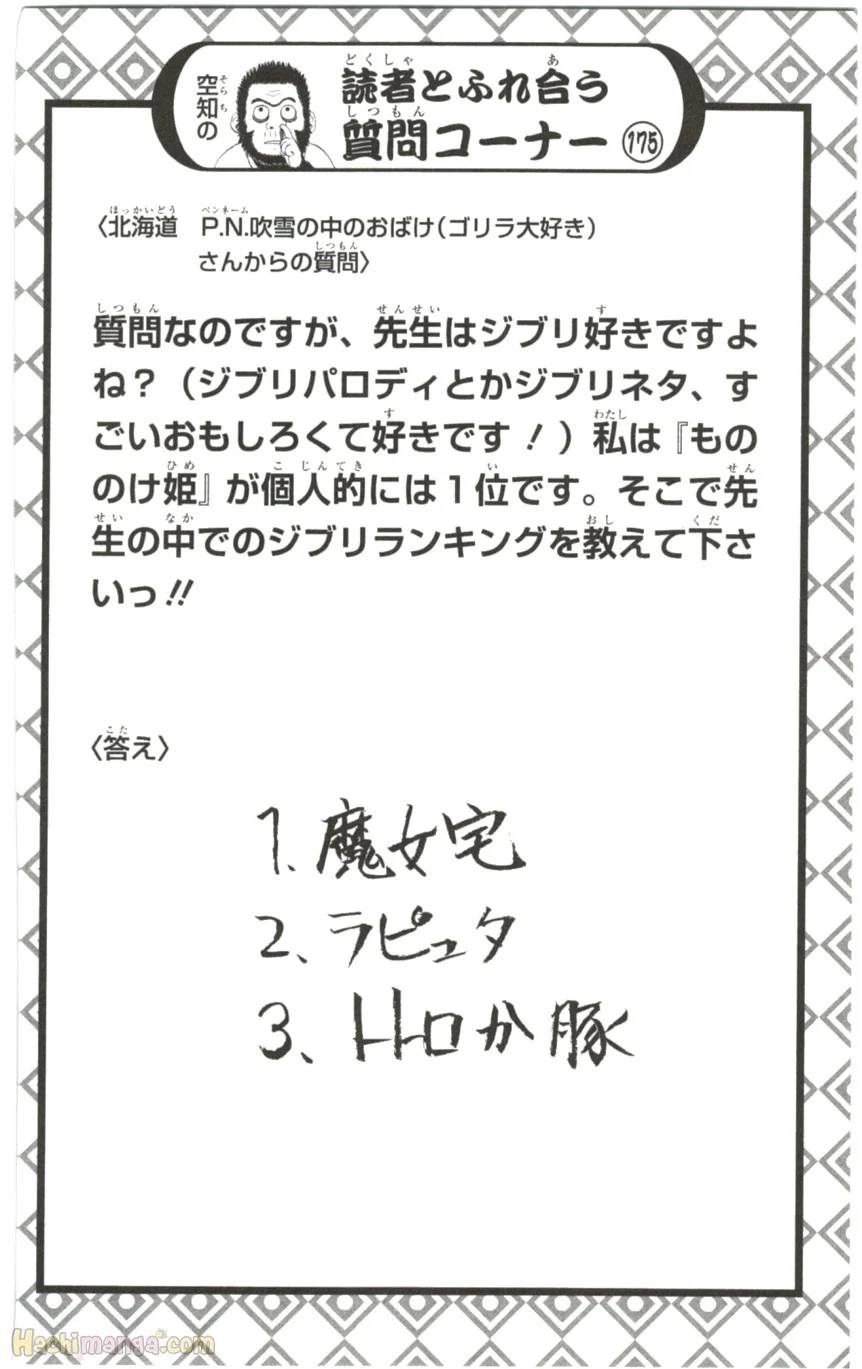 空知の
読者とふれ合う
質問コーナー 175
〈北海道 P.N.吹雪の中のおばけ(ゴリラ大好き)
さんからの質問〉
質問なのですが、先生はジブリ好きですよ
ね?(ジブリパロディとかジブリネタ、す
ごいおもしろくて好きです!)私は『もの
のけ姫』が個人的には1位です。そこで先
生の中でのジブリランキングを教えて下さ
いっ!!
〈答え〉
1、魔女宅
2、ラピュタ
3、トトロか豚
Hachimanga.com